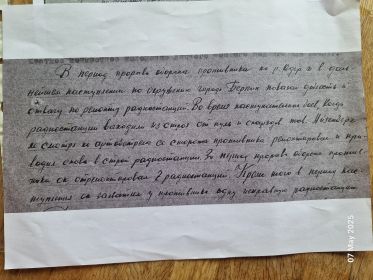 В период прорыва обороны противника на р. Одер и в даль-
нейшем наступлении по окружению города Берлин показал доблесть и
отвагу по ремонту радиостанций. Во время наступательных боев, когда
радиостанции выходили из строя от пуль и снарядов тов.
не смотря на со стороны противника ремонтировал и при-
водил снова в строй радиостанции. За период прорыва обороны против-
ника он отремонтировал 2 радиостанции. Кроме того в период нас-
тупления он захватил у противника одну исправную радиостанцию
07 May 2025